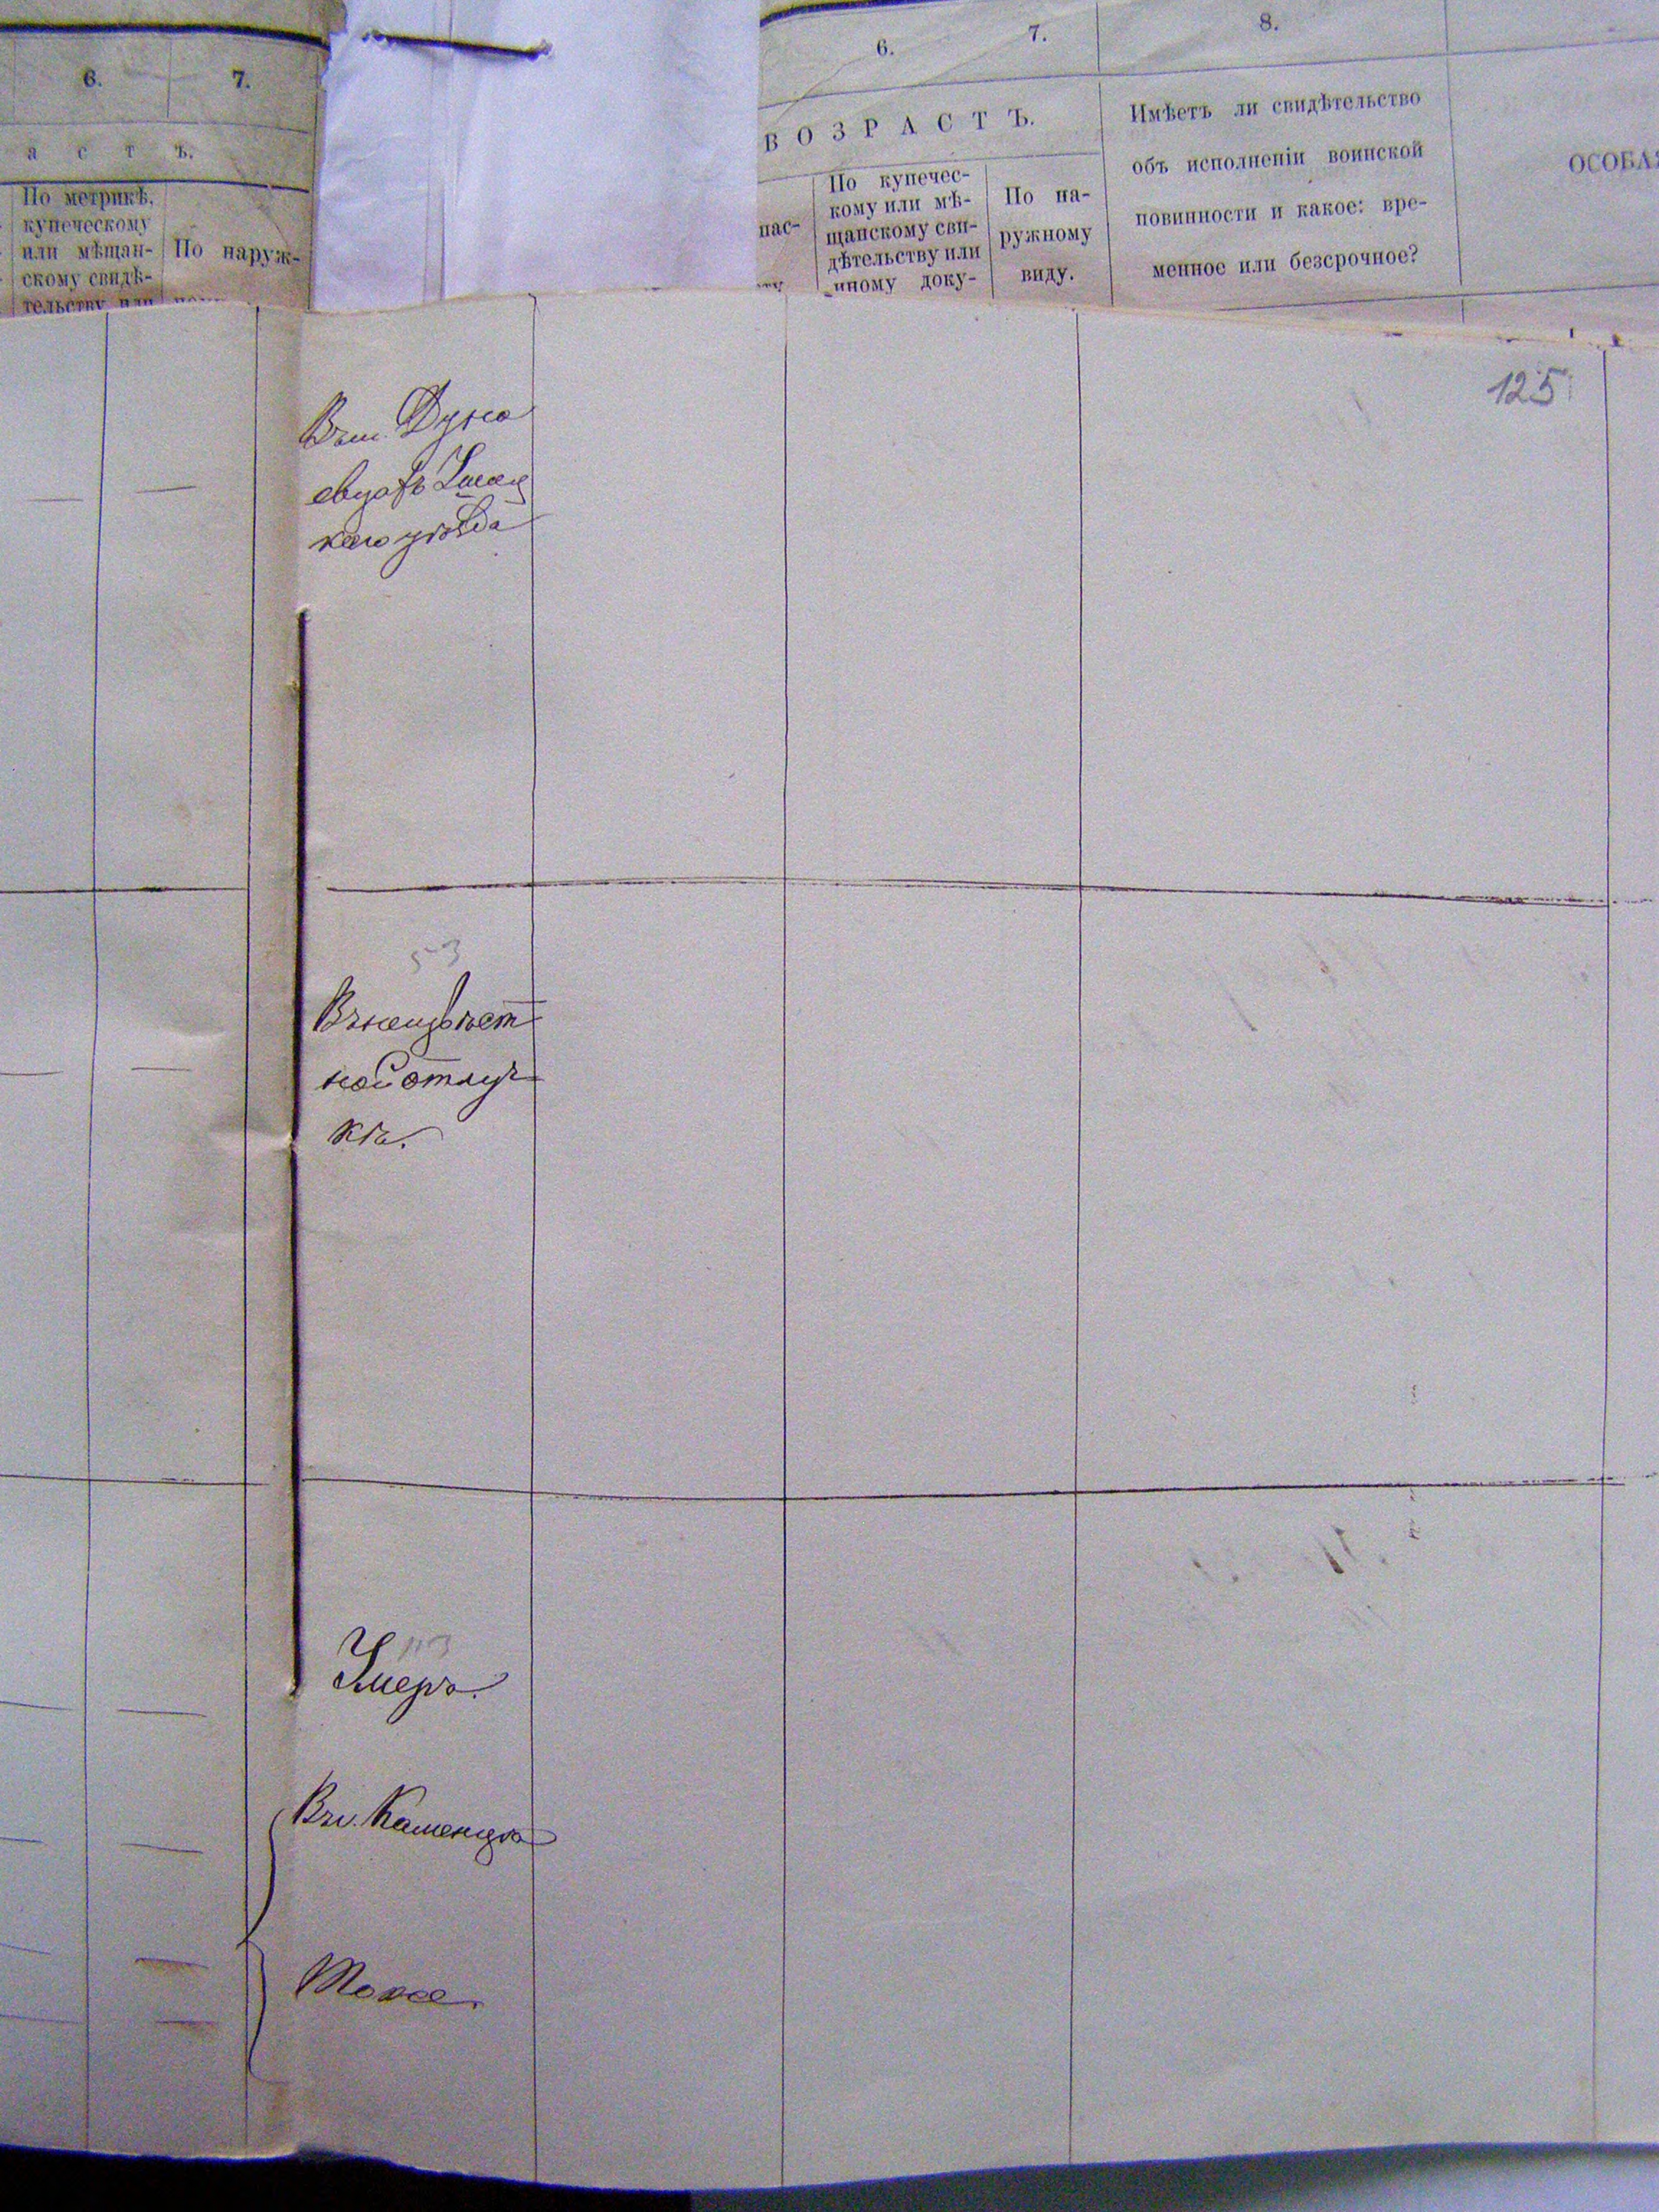 6. 7.
а с т ъ.
По метрикѣ,
купеческому
или мѣщан-
скому свидѣ-
тельству или
По наруж-
6. 7. 8.
ВОЗРАСТЪ.
нас-
По купечес-
кому или мѣ-
щанскому сви-
дѣтельству или
иному доку-
По на-
ружному
виду.
Имѣетъ ли свидѣтельство
объ исполненіи воинской
повинности и какое: вре-
менное или безсрочное?
ОСОБАЯ
125
Въ м. Дуна
евцахъ Ушиц
каго уѣзда
53
Въ неизвѣст
ной отлуч
кѣ.
Умеръ.
Въ г. Каменцѣ
Тоже